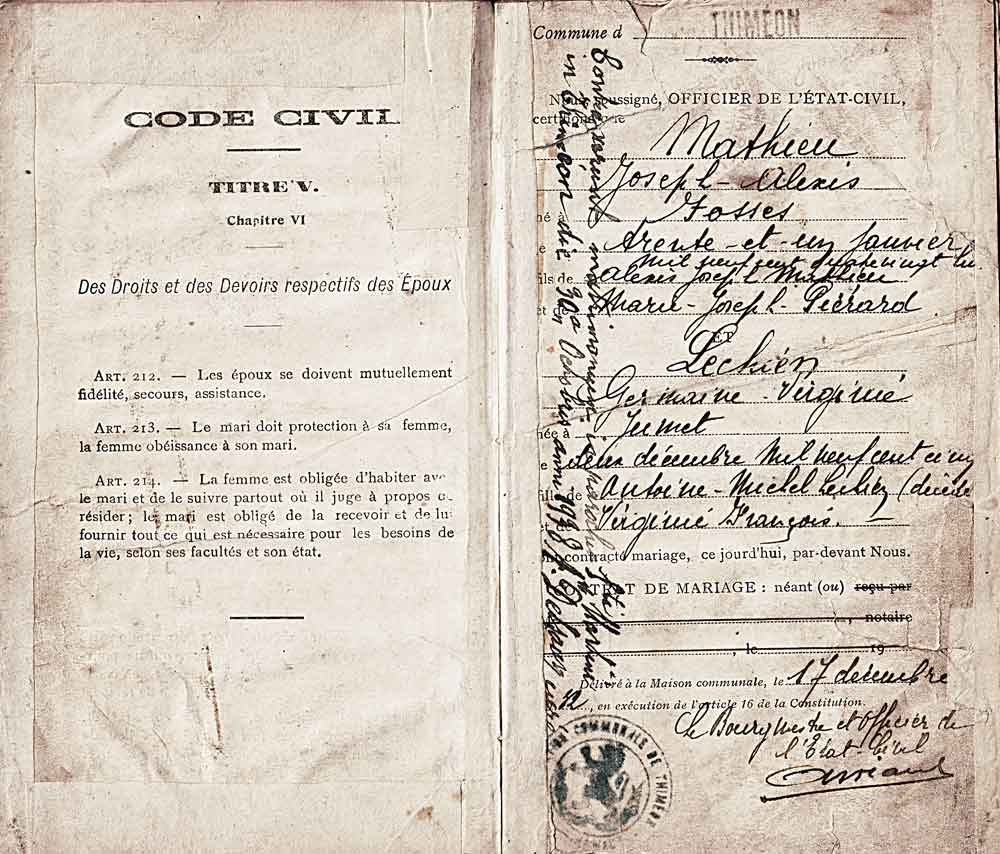 CODE CIVIL
TITRE V.
Chapitre VI
Des Droits et des Devoirs respectifs des Époux
ART. 212. — Les époux se doivent mutuellement
fidélité, secours, assistance.
ART. 213. — Le mari doit protection à sa femme,
la femme obéissance à son mari.
ART. 214. — La femme est obligée d'habiter ave
le mari et de le suivre partout où il juge à propos
résider; le mari est obligé de la recevoir et de lui
fournir tout ce qui est nécessaire pour les besoins de
la vie, selon ses facultés et son état.
Commune d THIMÉON
Nous soussigné, OFFICIER DE L'ÉTAT-CIVIL,
certifions que
Mathieu
Joseph-Alexis
né à Fosses
le trente-et-un janvier
mil neuf cent
fils de Alexis Joseph Mathieu
et de Marie-Joseph Piérard
ET
Lechien
Germaine-Virginie
née à Jumet
le deux décembre mil neuf cent cinq
fille de Antoine-Michel Lechien (décédé
Virginie François. —
ont contracté mariage, ce jourd'hui, par-devant Nous.
CONTRAT DE MARIAGE : néant (ou) reçu par
, notaire
, le 19
Délivré à la Maison communale, le 17 décembre
, en exécution de l'article 16 de la Constitution.
Le Bourgmestre et Officier de
l'État-Civil
COMMUNALE DE THIMÉON
matrimonium in
in Thiméon die 30a Octobris